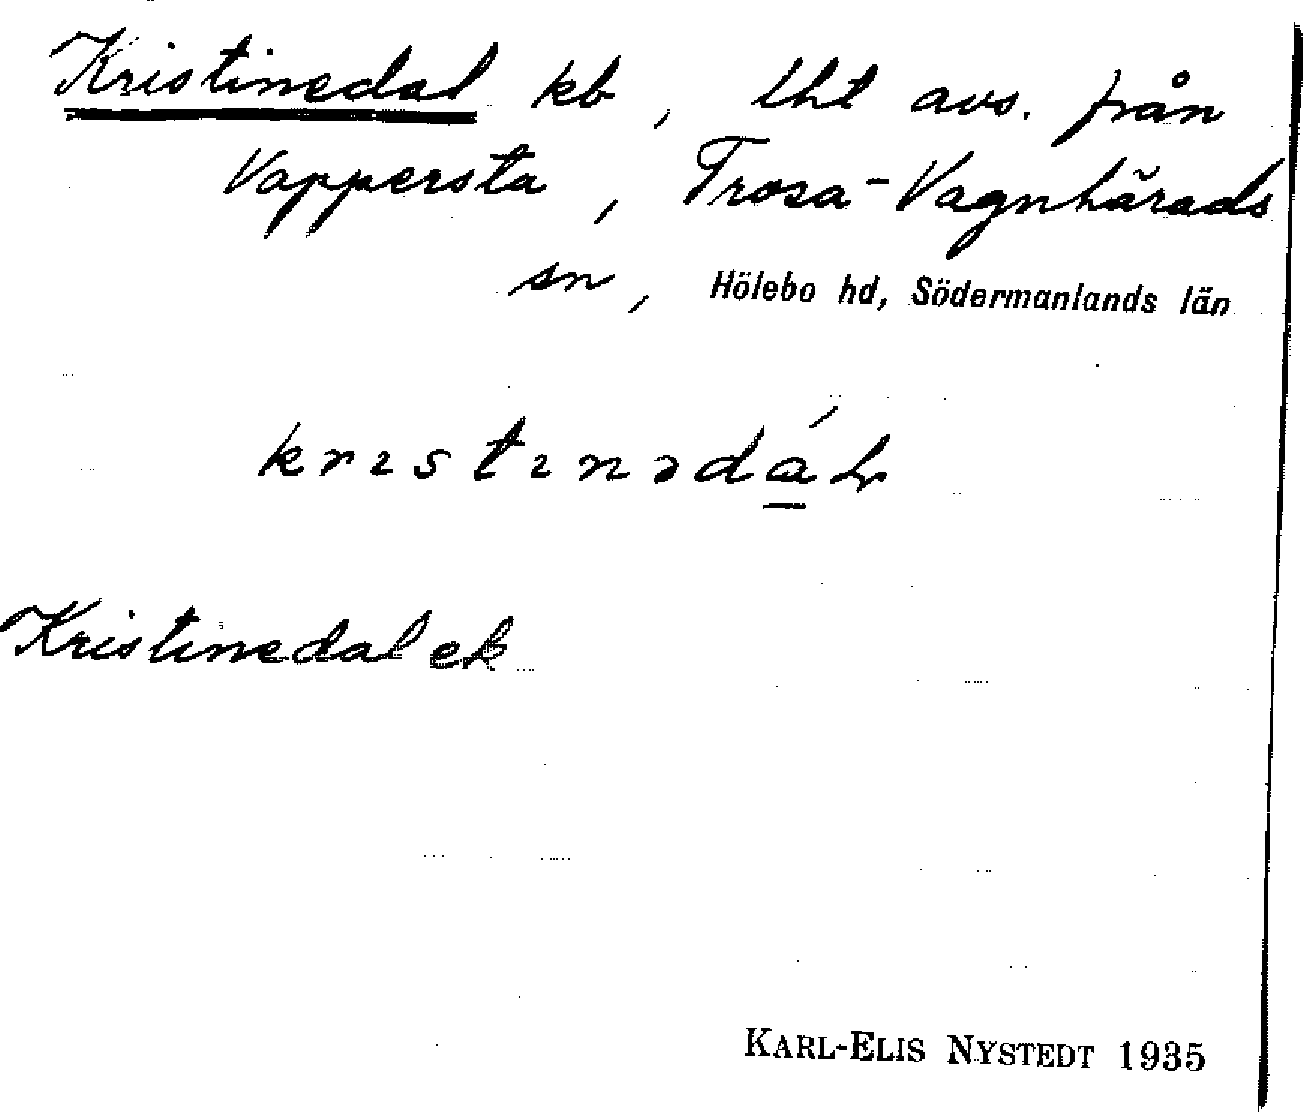 Kristinedal kb, lht avs. från
Vappersta, Trosa-Vagnhärads
sn, Hölebo hd, Södermanlands län
krıstınədá̱l
Kristinedal ek
KARL-ELIS NYSTEDT 1935